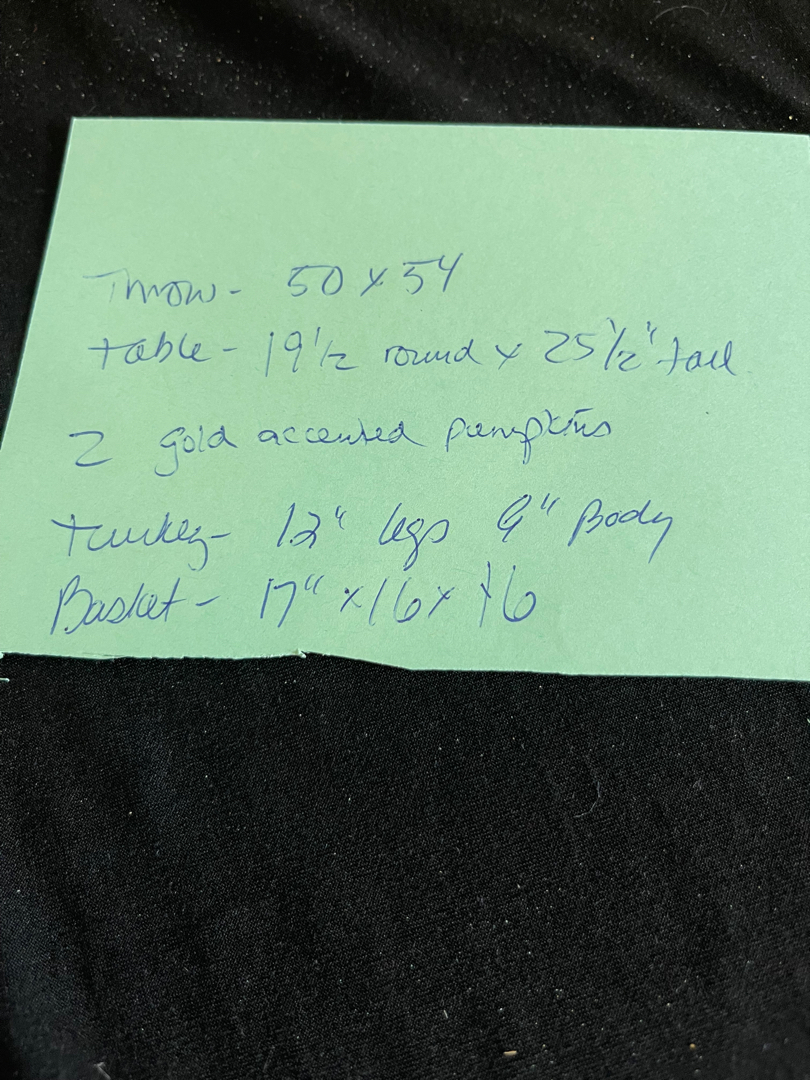 Throw - 50 x 54
table - 19 1/2 round x 25 1/2" tall
2 gold accented pumpkins
turkey - 12" legs 9" Body
Basket - 17" x 16 x 16